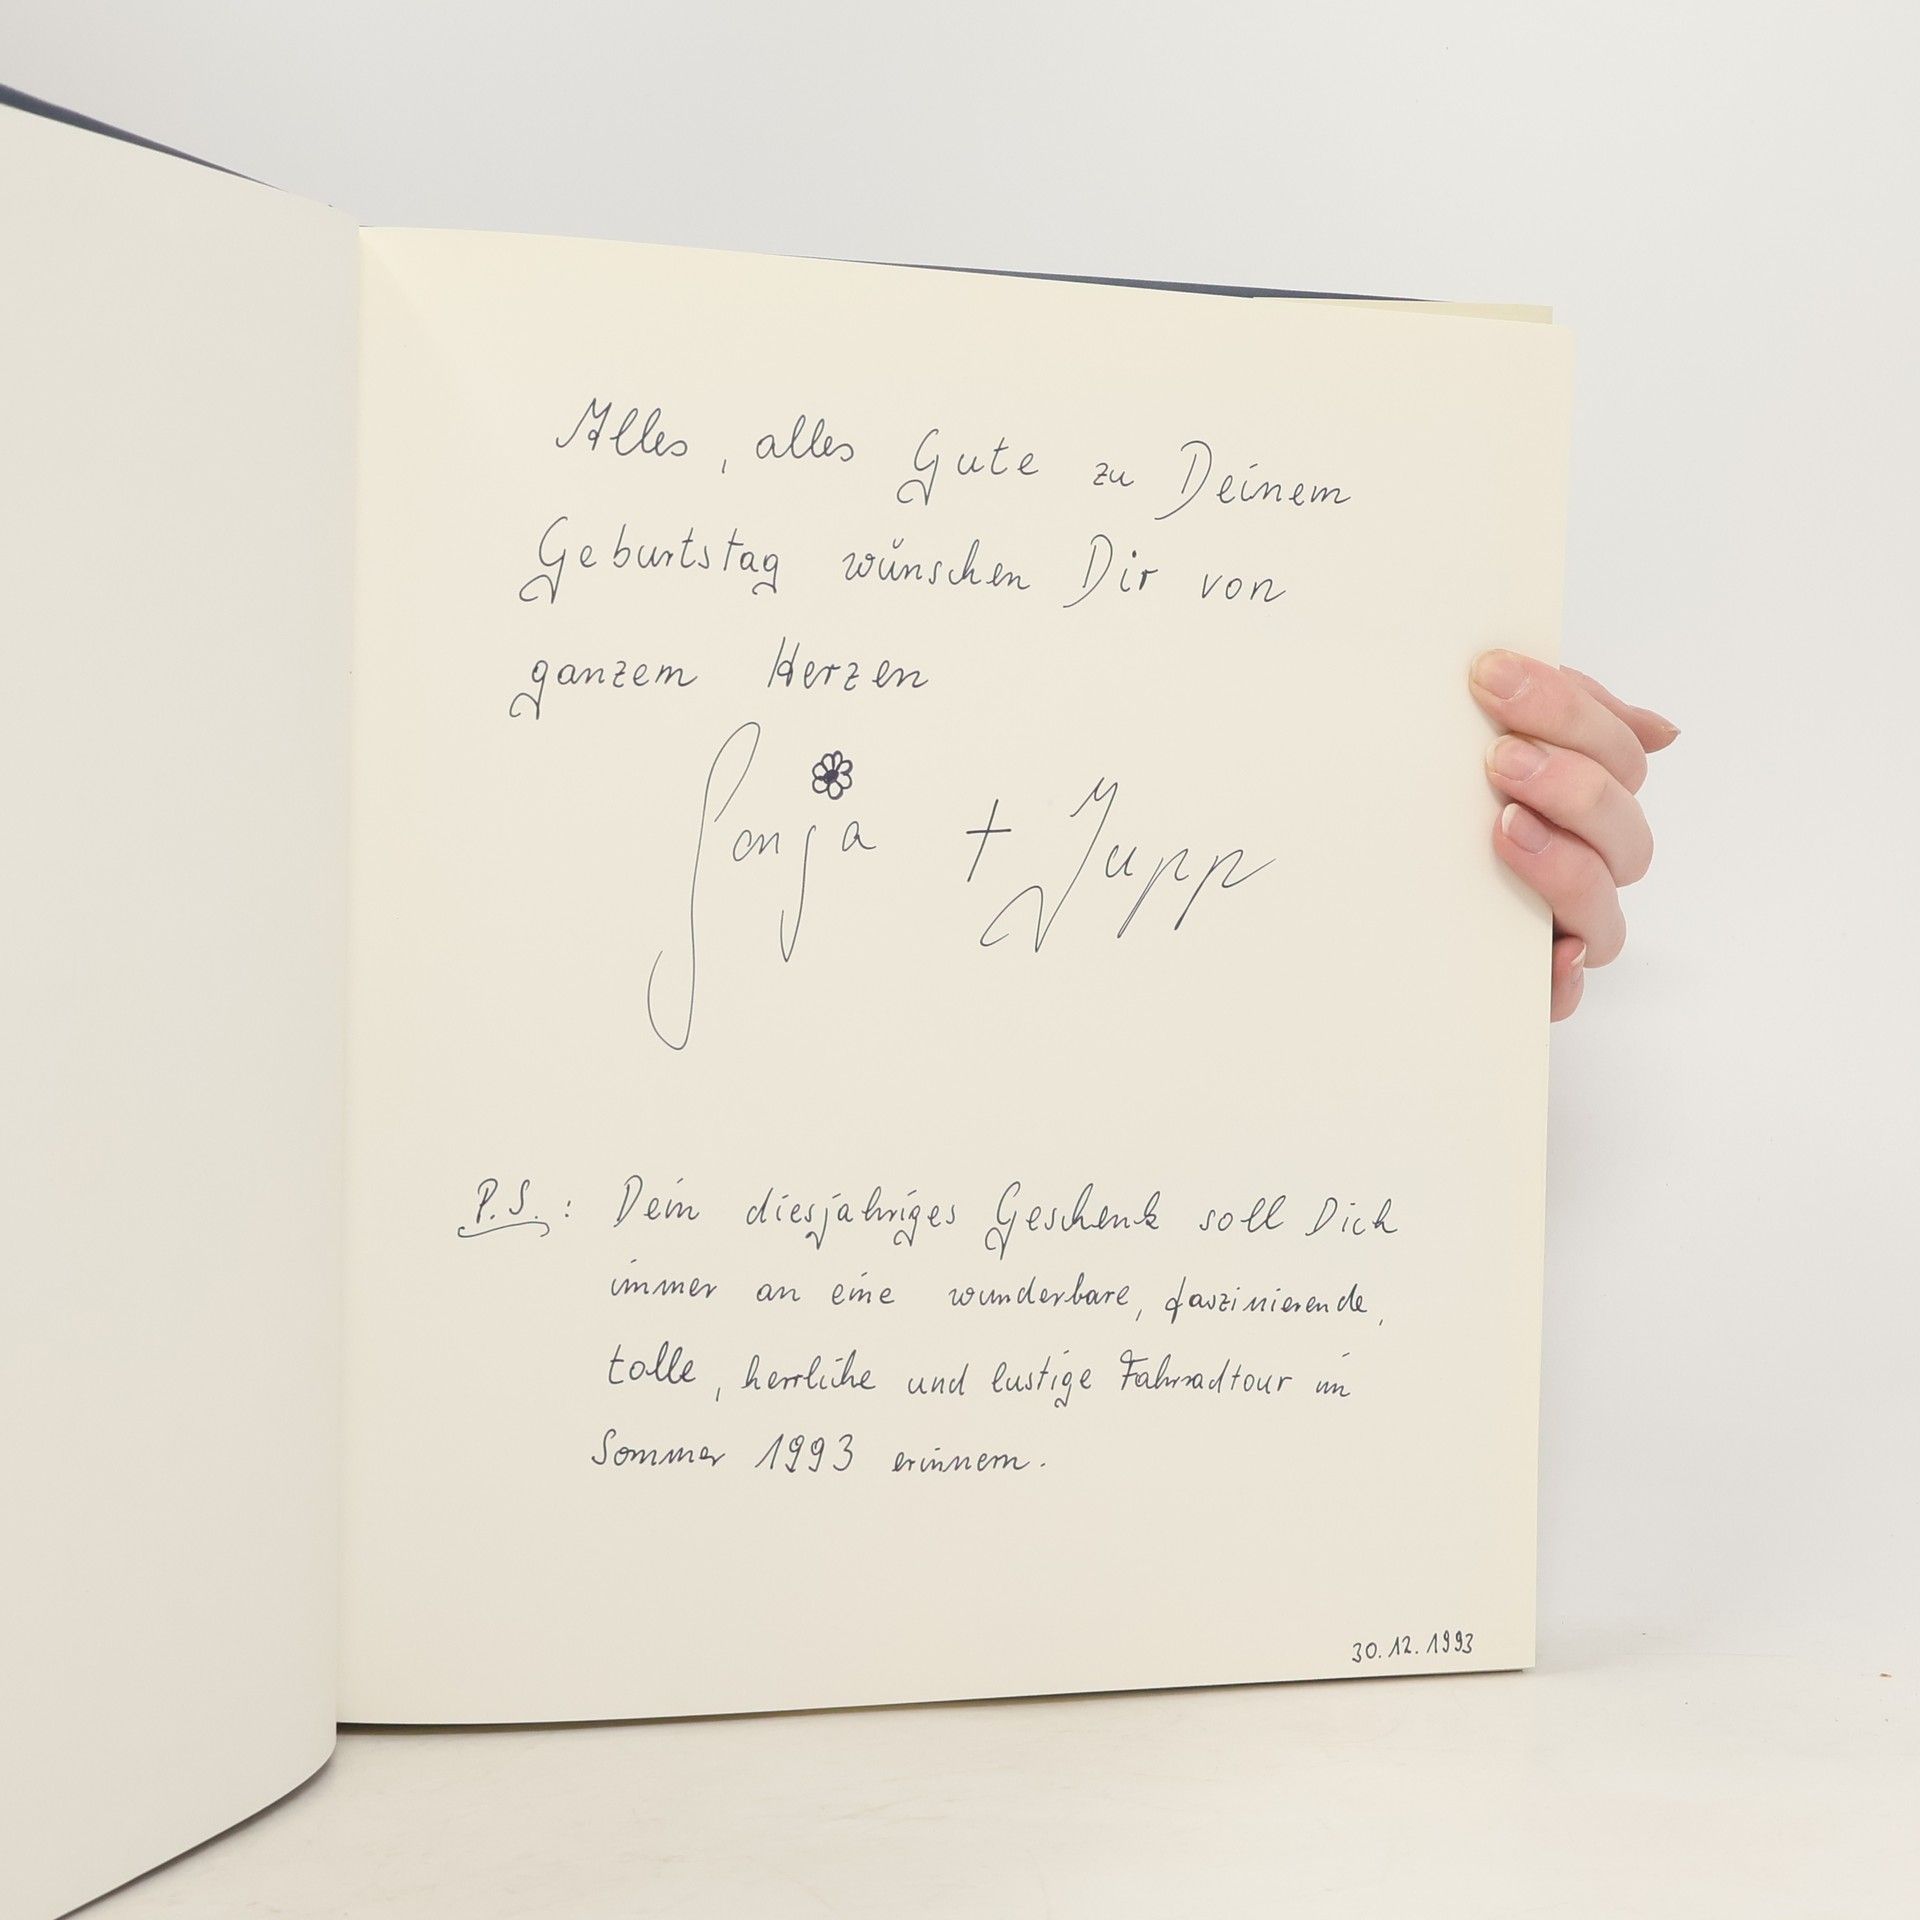 Alles, alles Gute zu Deinem
Geburtstag wünschen Dir von
ganzem Herzen
Sonja + Jupp
P.S.: Dein diesjähriges Geschenk soll Dich
immer an eine wunderbare, faszinierende,
tolle, herrliche und lustige Fahrradtour im
Sommer 1993 erinnern.
30.12.1993